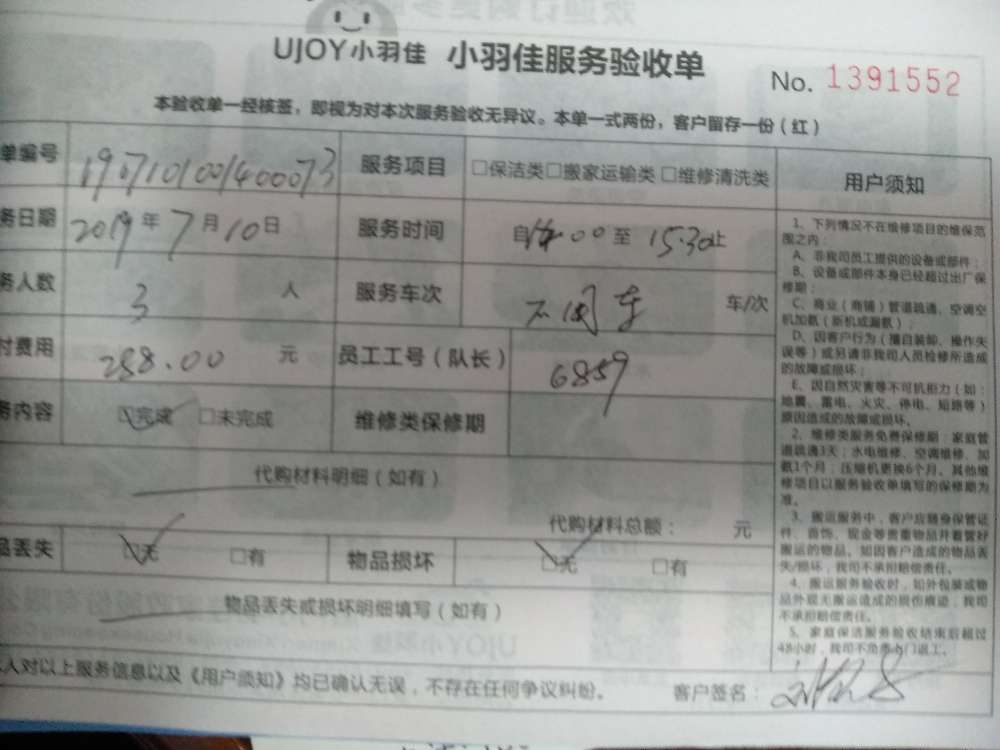 UJOY小羽佳 小羽佳服务验收单 No. 1391552
本验收单一经核签，即视为对本次服务验收无异议。本单一式两份，客户留存一份（红）
单编号 19071010014000073 服务项目 □保洁类□搬家运输类 □维修清洗类
务日期 2019年7月10日 服务时间 自14:00至15:30止
务人数 3 人 服务车次 不用车 车/次
付费用 288.00 元 员工工号（队长） 6859
务内容 □完成 □未完成 维修类保修期
代购材料明细（如有）
代购材料总额： 元
品丢失 □无 □有 物品损坏 □无 □有
物品丢失或损坏明细填写（如有）
人对以上服务信息以及《用户须知》均已确认无误，不存在任何争议纠纷。 客户签名：
用户须知
1、下列情况不在维修项目的维保范
围之内：
A、非我司员工提供的设备或部件；
B、设备或部件本身已经超过出厂保
修期；
C、商业（商铺）管道疏通、空调空
机加氨（新机或漏氨）；
D、因客户行为（擅自装卸、操作失
误等）或另请非我司人员检修所造成
的故障或损坏；
E、因自然灾害等不可机拒力（如：
地震、雷电、火灾、停电、短路等）
原因造成的故障或损坏。
2、维修类服务免费保修期：家庭管
道疏通3天；水电维修、空调维修、加
氨1个月；压缩机更换6个月。其他维
修项目以服务验收单填写的保修期为
准。
3、搬运服务中，客户应随身保管证
件、首饰、现金等贵重物品并看管好
搬运的物品。如因客户造成的物品丢
失/损坏，我司不承担赔偿责任。
4、搬运服务验收时，如外包装或物
品外观无搬运造成的损伤痕迹，我司
不承担赔偿责任。
5、家庭保洁服务验收结束后超过
48小时，我司不负责上门返工。